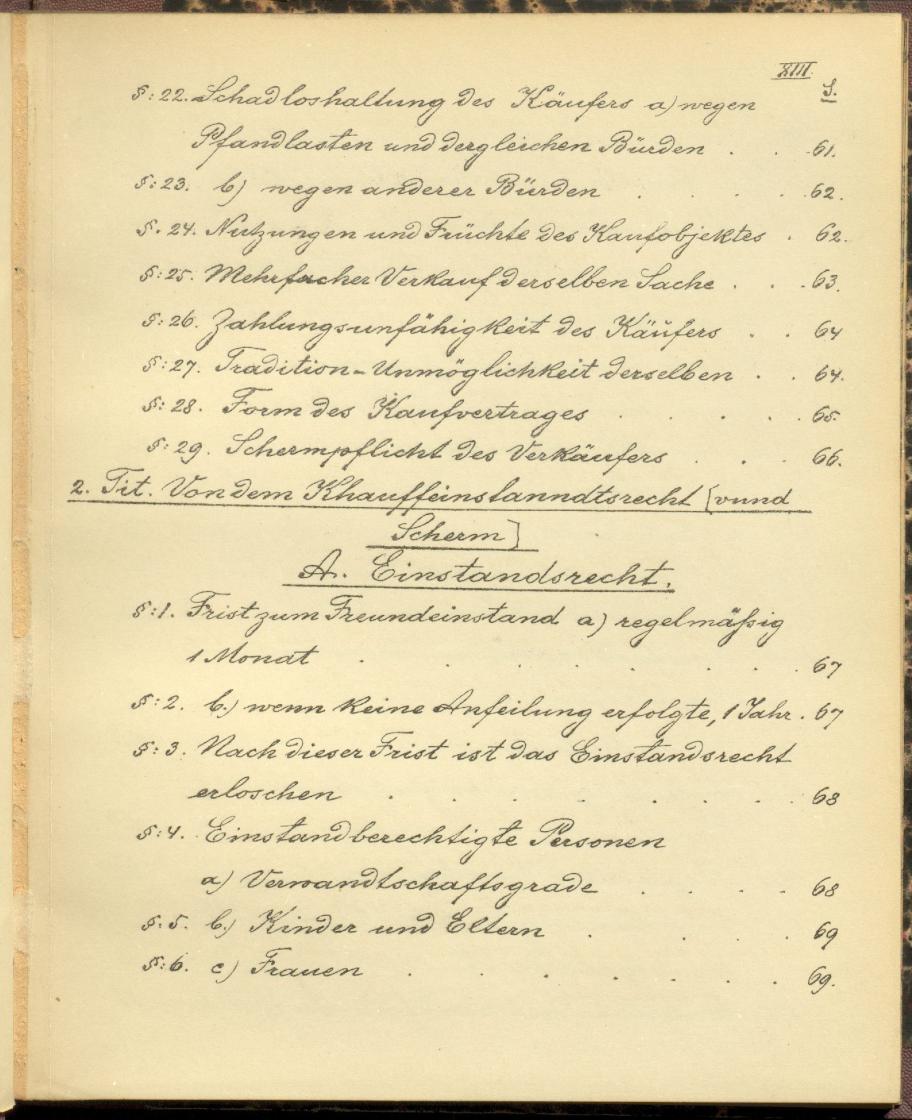 XIII.
S.
§: 22. Schadloshaltung des Käufers a) wegen
Pfandlasten und dergleichen Bürden . . . 61.
§: 23. b) wegen anderer Bürden . . . . . 62.
§. 24. Nutzungen und Früchte des Kaufobjektes . 62.
§: 25. Mehrfacher Verkauf derselben Sache . . . 63.
§: 26. Zahlungsunfähigkeit des Käufers . . 64
§: 27. Tradition-Unmöglichkeit derselben . . 64.
§: 28. Form des Kaufvertrages . . . . . 65.
§: 29. Schermpflicht des Verkäufers . . . 66.
2. Tit. Von dem Khauffeinstanndtsrecht [vund
Scherm]
A. Einstandsrecht.
§: 1. Frist zum Freundeinstand a) regelmäßig
1 Monat . . . . . . . . 67
§: 2. b.) wenn keine Anfeilung erfolgte, 1 Jahr . 67
§: 3. Nach dieser Frist ist das Einstandsrecht
erloschen . . . . . . . . 68
§: 4. Einstandberechtigte Personen
a) Verwandtschaftsgrade . . . . 68
§. 5. b.) Kinder und Eltern . . . . 69
§: 6. c) Frauen . . . . . . 69.